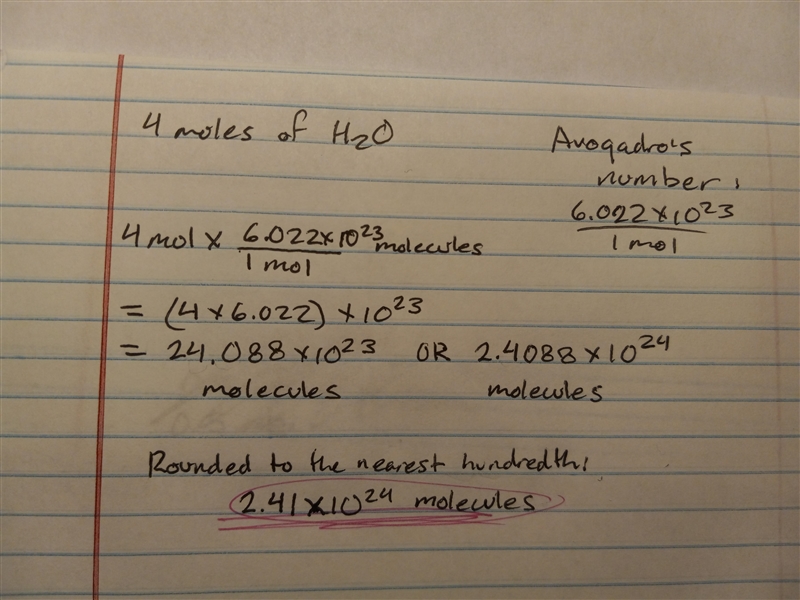 4 moles of H₂O
Avogadro's
number:
6.022 × 10²³
1 mol
4 mol × 6.022 × 10²³ molecules
1 mol
= (4 × 6.022) × 10²³
= 24.088 × 10²³ OR 2.4088 × 10²⁴
molecules molecules
Rounded to the nearest hundredth:
2.41 × 10²⁴ molecules